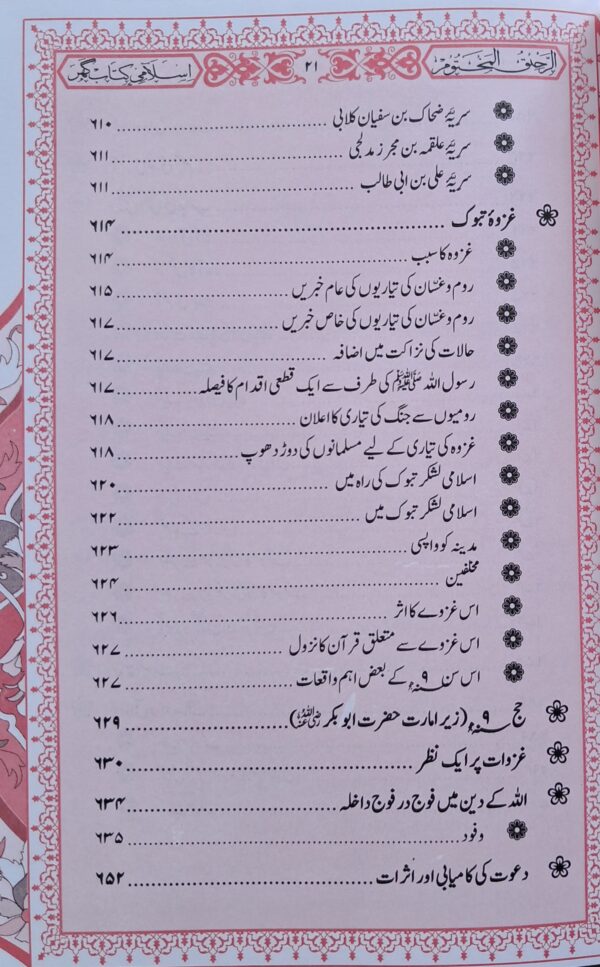 الرحیق المختوم ۲۱ اسلامی کتاب گھر
سریۂ ضحاک بن سفیان کلابی ۶۱۰
سریۂ علقمہ بن مجرز مدلجی ۶۱۱
سریۂ علی بن ابی طالب ۶۱۱
غزوۂ تبوک ۶۱۴
غزوہ کا سبب ۶۱۴
روم و غسّان کی تیاریوں کی عام خبریں ۶۱۵
روم و غسّان کی تیاریوں کی خاص خبریں ۶۱۷
حالات کی نزاکت میں اضافہ ۶۱۷
رسول اللہ ﷺ کی طرف سے ایک قطعی اقدام کا فیصلہ ۶۱۷
رومیوں سے جنگ کی تیاری کا اعلان ۶۱۸
غزوہ کی تیاری کے لیے مسلمانوں کی دوڑ دھوپ ۶۱۸
اسلامی لشکر تبوک کی راہ میں ۶۲۰
اسلامی لشکر تبوک میں ۶۲۲
مدینہ کو واپسی ۶۲۳
مخلفین ۶۲۴
اس غزوے کا اثر ۶۲۶
اس غزوے سے متعلق قرآن کا نزول ۶۲۷
اس سن ۹ھ کے بعض اہم واقعات ۶۲۷
حج ۹ھ (زیر امارت حضرت ابو بکر رضی اللہ عنہ) ۶۲۹
غزوات پر ایک نظر ۶۳۰
اللہ کے دین میں فوج در فوج داخلہ ۶۳۴
وفود ۶۳۵
دعوت کی کامیابی اور اثرات ۶۵۲